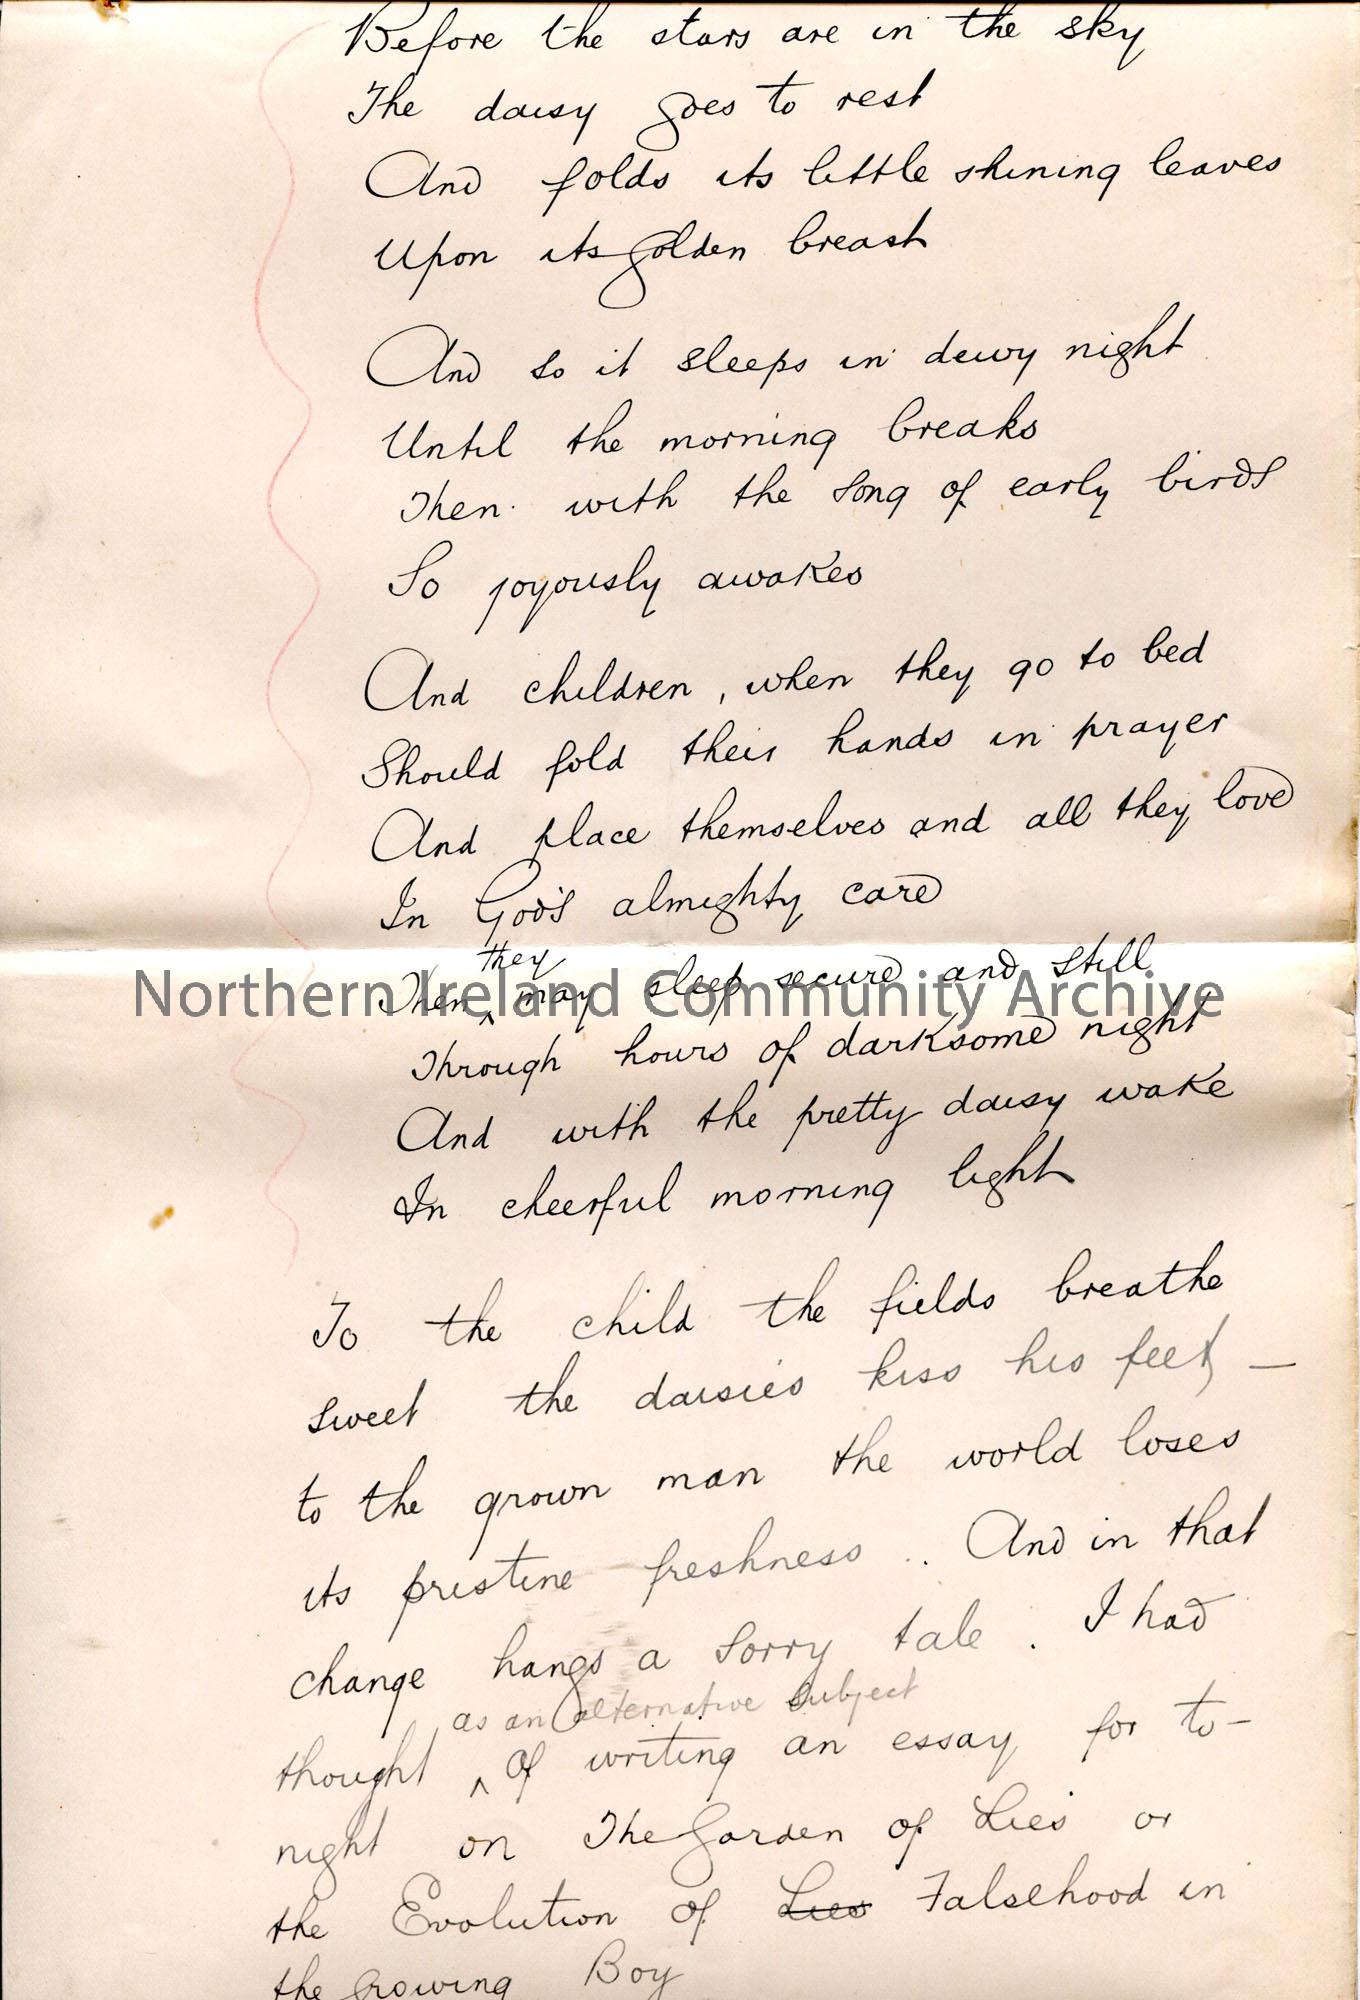 Before the stars are in the sky
The daisy goes to rest
And folds its little shining leaves
Upon its golden breast
And so it sleeps in dewy night
Until the morning breaks
Then with the song of early birds
So joyously awakes
And children, when they go to bed
Should fold their hands in prayer
And place themselves and all they love
In God's almighty care
they
Then ^ may sleep secure and still
Northern Ireland Community Archive
Through hours of darksome night
And with the pretty daisy wake
In cheerful morning light
To the child the fields breathe
sweet the daisies kiss his feet, —
to the grown man the world loses
its pristine freshness .. And in that
change hangs a sorry tale. I had
as an alternative subject
thought ^ of writing an essay for to-
night on The Garden of Lies or
the Evolution of Lies Falsehood in
the Growing Boy